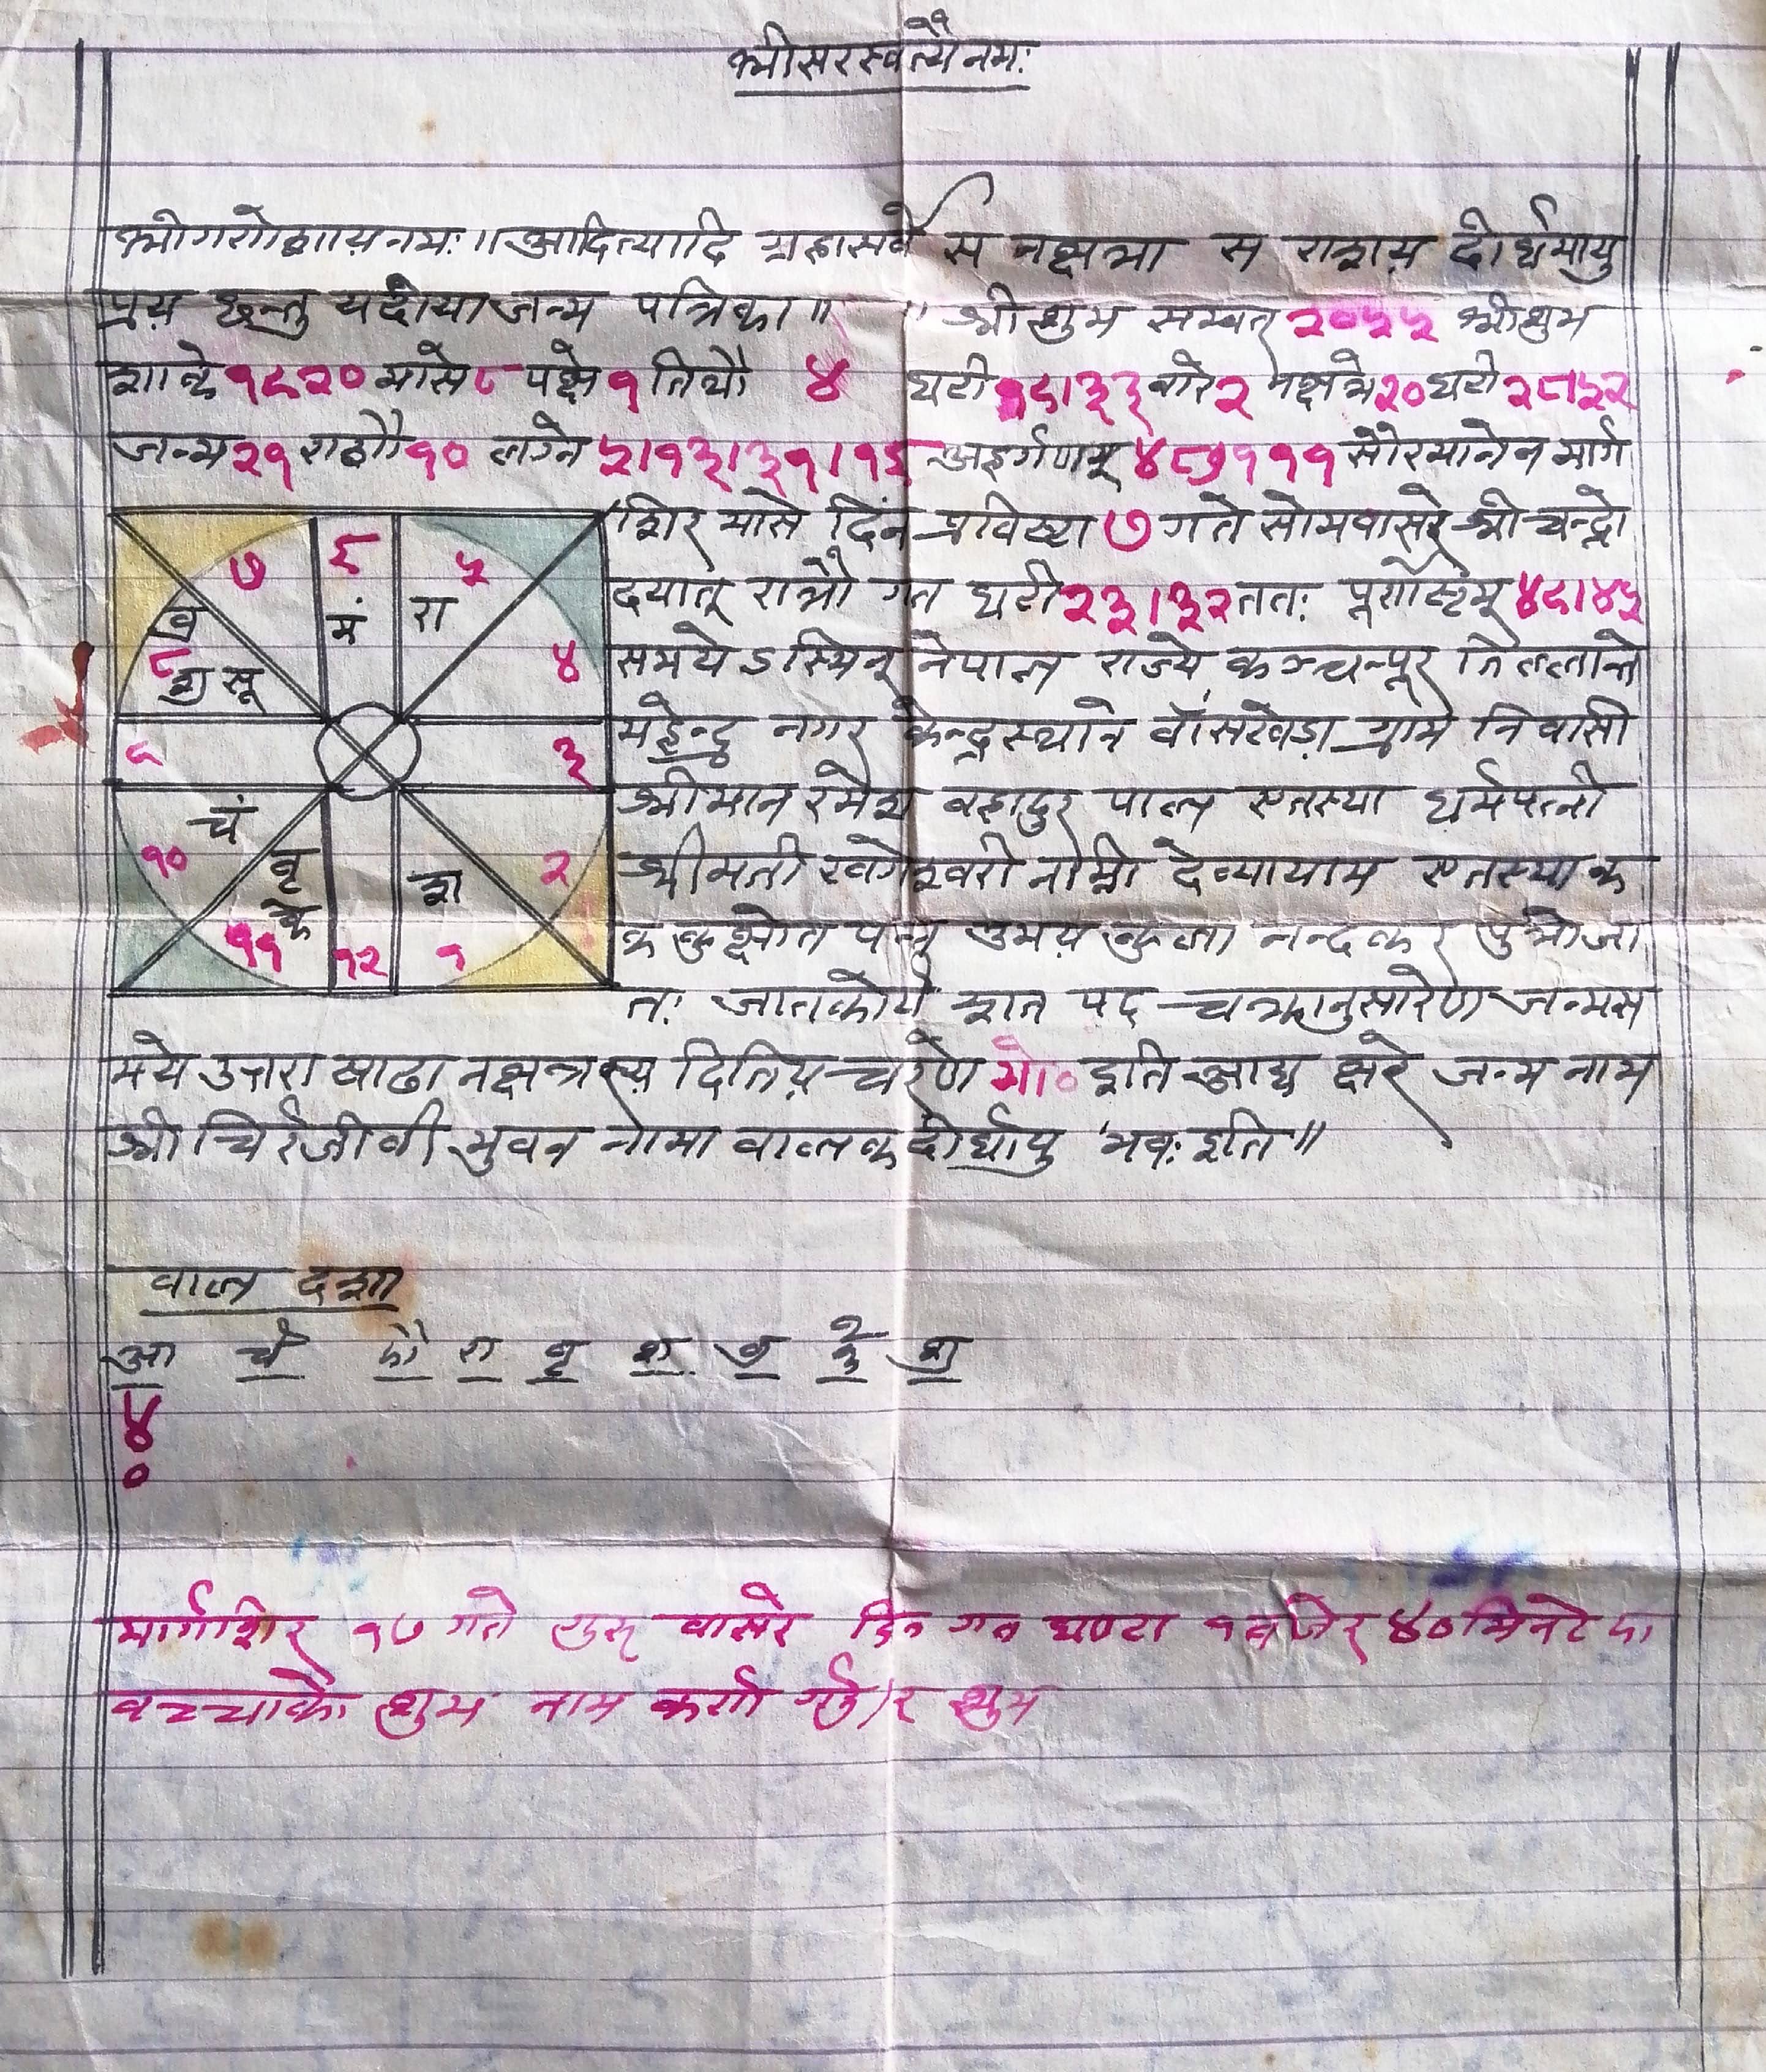 श्रीसरस्वत्यै नमः
श्रीगणेशाय नमः ॥ आदित्यादि ग्रहासर्वे स नक्षत्रा स राशय दीर्घमायु
प्रय छन्तु यदीया जन्म पत्रिका ॥ ॥ श्री शुभ सम्वत् २०५५ श्रीशुभ
शाके १९२० मासे ८ पक्षे १ तिथौ ४ घटी १९।३३ वारे २ नक्षत्रे २० घटी २८।५२
जन्म २१ राशौ १० लग्ने ५।१३।३१।१६ अहर्गणम् ४८७१११ सौरमानेन मार्ग
शिर मासे दिन प्रविष्टा ७ गते सोमवासरे श्री चन्द्रो
दयात् रात्रौ गत घटी २३।३२ ततः पूर्णेष्टम् ४९।४५
समये ऽस्मिन् नेपाल राज्ये कञ्चनपूर जिल्लान्ते
महेन्द्र नगर केन्द्रस्थाने बाँसखेडा ग्रामे निवासी
श्रीमान रमेश बहादुर पाल एतस्या धर्मपत्नी
श्रीमती खगेश्वरी नाम्नी देव्यायाम एतस्या क
क कुक्षोत पन्न उभय कुला नन्दकर पुत्रोजा
तः जातकोयं शत पद चक्रानुसारेण जन्मस
मये उत्तरा षाढा नक्षत्रस्य दितिय चरणे भो० इति आद्य क्षरे जन्म नाम
श्री चिरंजीवी भुवन नामा वालक दीर्घायु भवः इति ॥
७
६
मं
५
रा
४
बु
८
शु सू
९
३
चं
१०
वृ
के
११
१२
१
श
२
वाल दशा
आ चं भौ रा वृ श बु के शु
४
०
मार्गशिर १७ गते गुरु वासरे दिन गत घण्टा १ वजेर ४० मिनेट मा
वच्चाको शुभ नाम कर्ण गर्नु शुभ